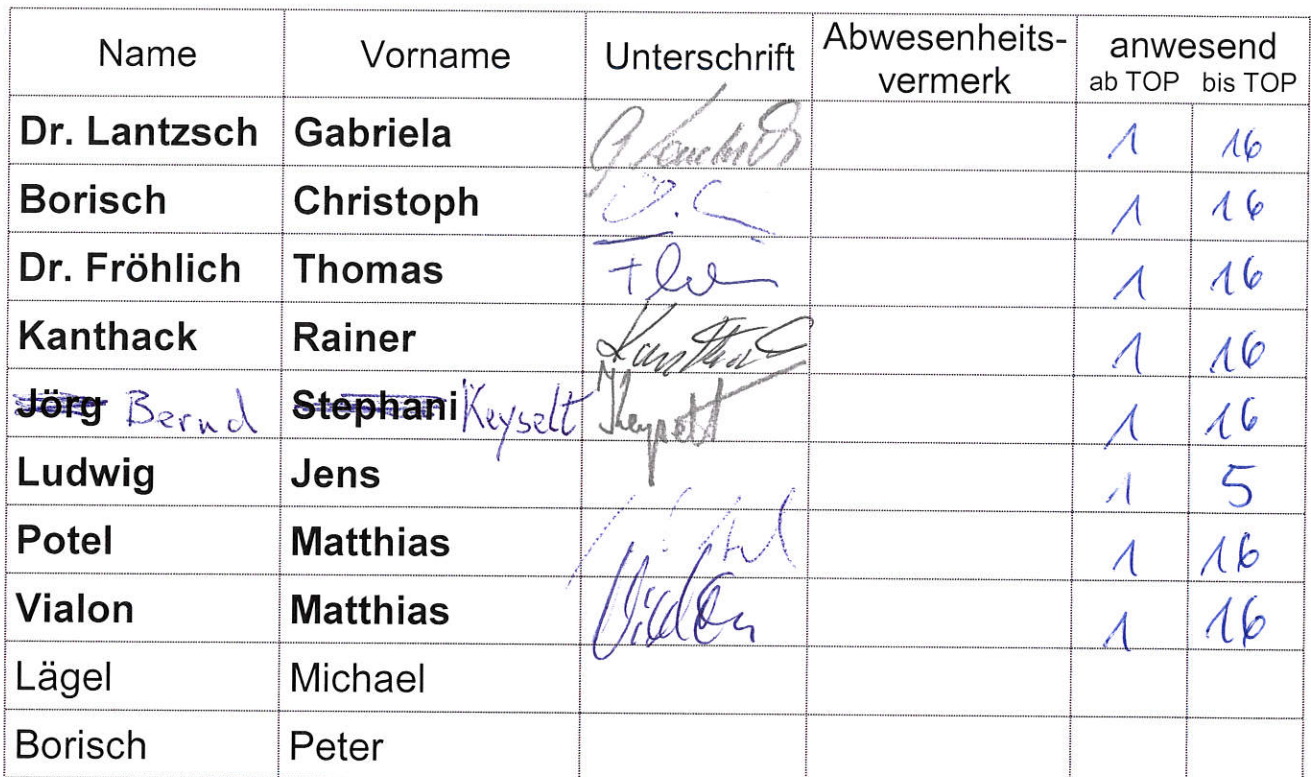 Name Vorname Unterschrift Abwesenheits-vermerk anwesend
ab TOP bis TOP
Dr. Lantzsch Gabriela 1 16
Borisch Christoph 1 16
Dr. Fröhlich Thomas 1 16
Kanthack Rainer 1 16
Jörg Bernd Stephani Keyselt Keyselt 1 16
Ludwig Jens 1 5
Potel Matthias 1 16
Vialon Matthias 1 16
Lägel Michael
Borisch Peter